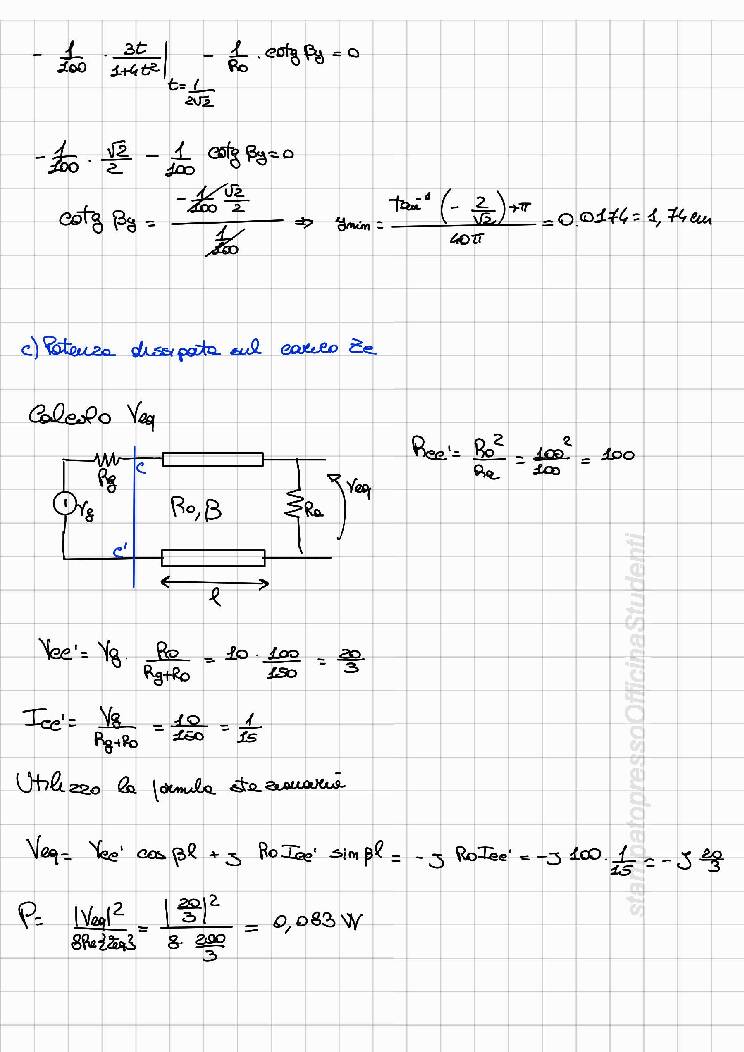 - 1/100 · 3t/(1+4t²) |t=1/(2√2) - 1/Ro · cotg βy = 0
- 1/100 · √2/2 - 1/100 cotg βy = 0
cotg βy = (- 1/100 √2/2) / (1/100) ⇒ ymin = (tan⁻¹ (- 2/√2) + π) / 40π = 0.0174 = 1,74 cm
c) Potenza dissipata sul carico Zc
Calcolo Veq
Rcc' = Ro²/Ra = 100²/100 = 100
Rg
C
Vg
Ro, β
Ra
Veq
C'
l
Vcc' = Vg · Ro/(Rg+Ro) = 10 · 100/150 = 20/3
Icc' = Vg/(Rg+Ro) = 10/150 = 1/15
Utilizzo la formula stazionaria
Veq = Vcc' cos βl + J Ro Icc' sin βl = - J Ro Icc' = -J 100 · 1/15 = - J 20/3
P = |Veq|²/(8Re{Zeq}) = |20/3|²/(8 · 200/3) = 0,083 W
stampatopressoOfficinaStudenti